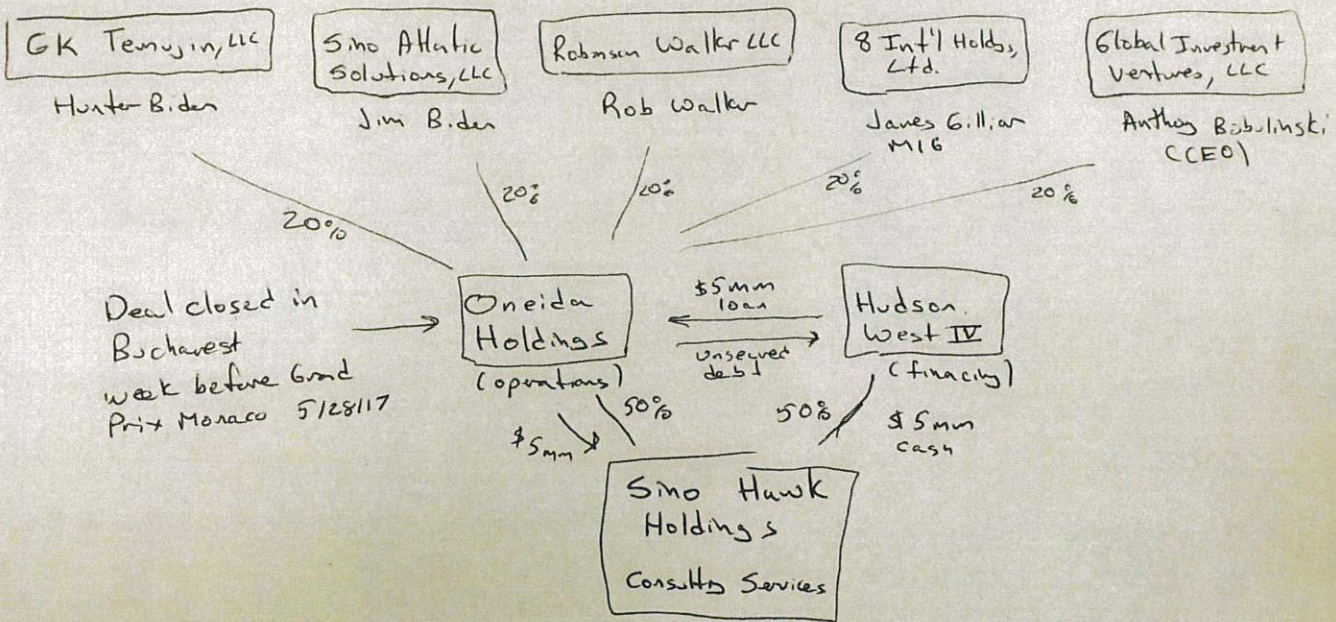 GK Temujin, LLC
Hunter Biden
Sino Atlantic
Solutions, LLC
Jim Biden
Robinson Walker LLC
Rob Walker
8 Int'l Holds,
Ltd.
James Gilliar
MI6
Global Investment
Ventures, LLC
Anthony Bobulinski
(CEO)
20%
20%
20%
20%
20%
Deal closed in
Bucharest
week before Grand
Prix Monaco 5/28/17
Oneida
Holdings
(operations)
$5mm
loan
Unsecured
debt
Hudson
West IV
(finacing)
50%
50%
$5mm
$5mm
cash
Sino Hawk
Holdings
Consulting Services